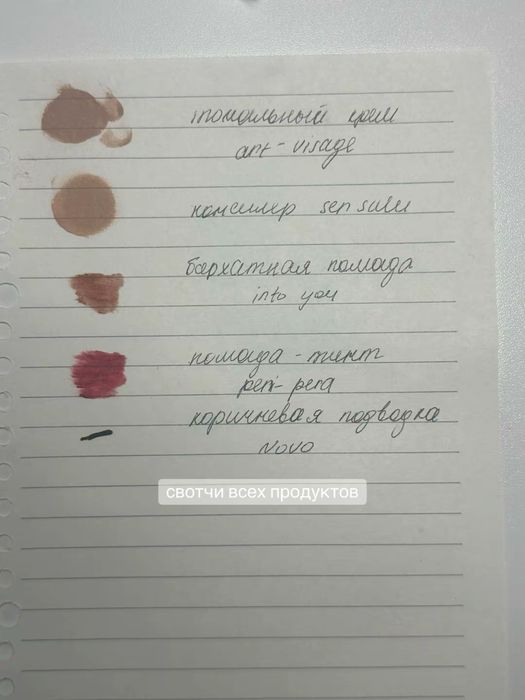 тональный крем
art-visage
консилер sensulu
бархатная помада
into you
помада-тинт
peri-pera
коричневая подводка
novo
свотчи всех продуктов